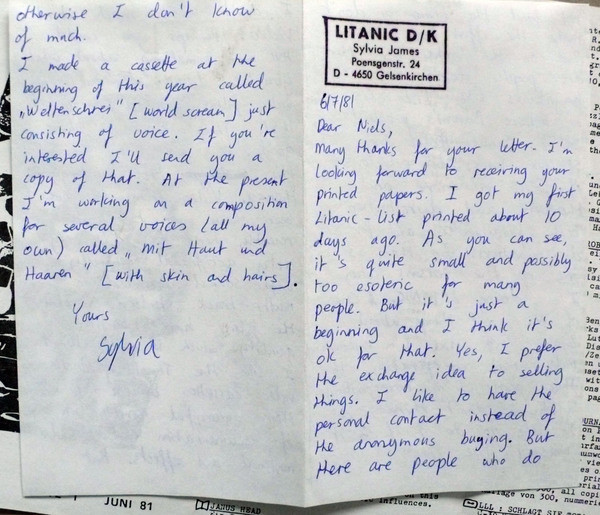 LITANIC D/K
Sylvia James
Poensgenstr. 24
D - 4650 Gelsenkirchen
6/7/81
Dear Niels,
many thanks for your letter. I'm
looking forward to receiving your
printed papers. I got my first
Litanic-list printed about 10
days ago. As you can see,
it's quite small and possibly
too esoteric for many
people. But it's just a
beginning and I think it's
ok for that. Yes, I prefer
the exchange idea to selling
things. I like to have the
personal contact instead of
the anonymous buying. But
there are people who do
otherwise I don't know
of much.
I made a cassette at the
beginning of this year called
„Weltenschrei" [world scream] just
consisting of voice. If you're
interested I'll send you a
copy of that. At the present
I'm working on a composition
for several voices (all my
own) called „mit Haut und
Haaren" [with skin and hairs].
Yours
Sylvia
JUNI 81
JANUS HEAD
LLL : SCHLAGT
lage von 300,